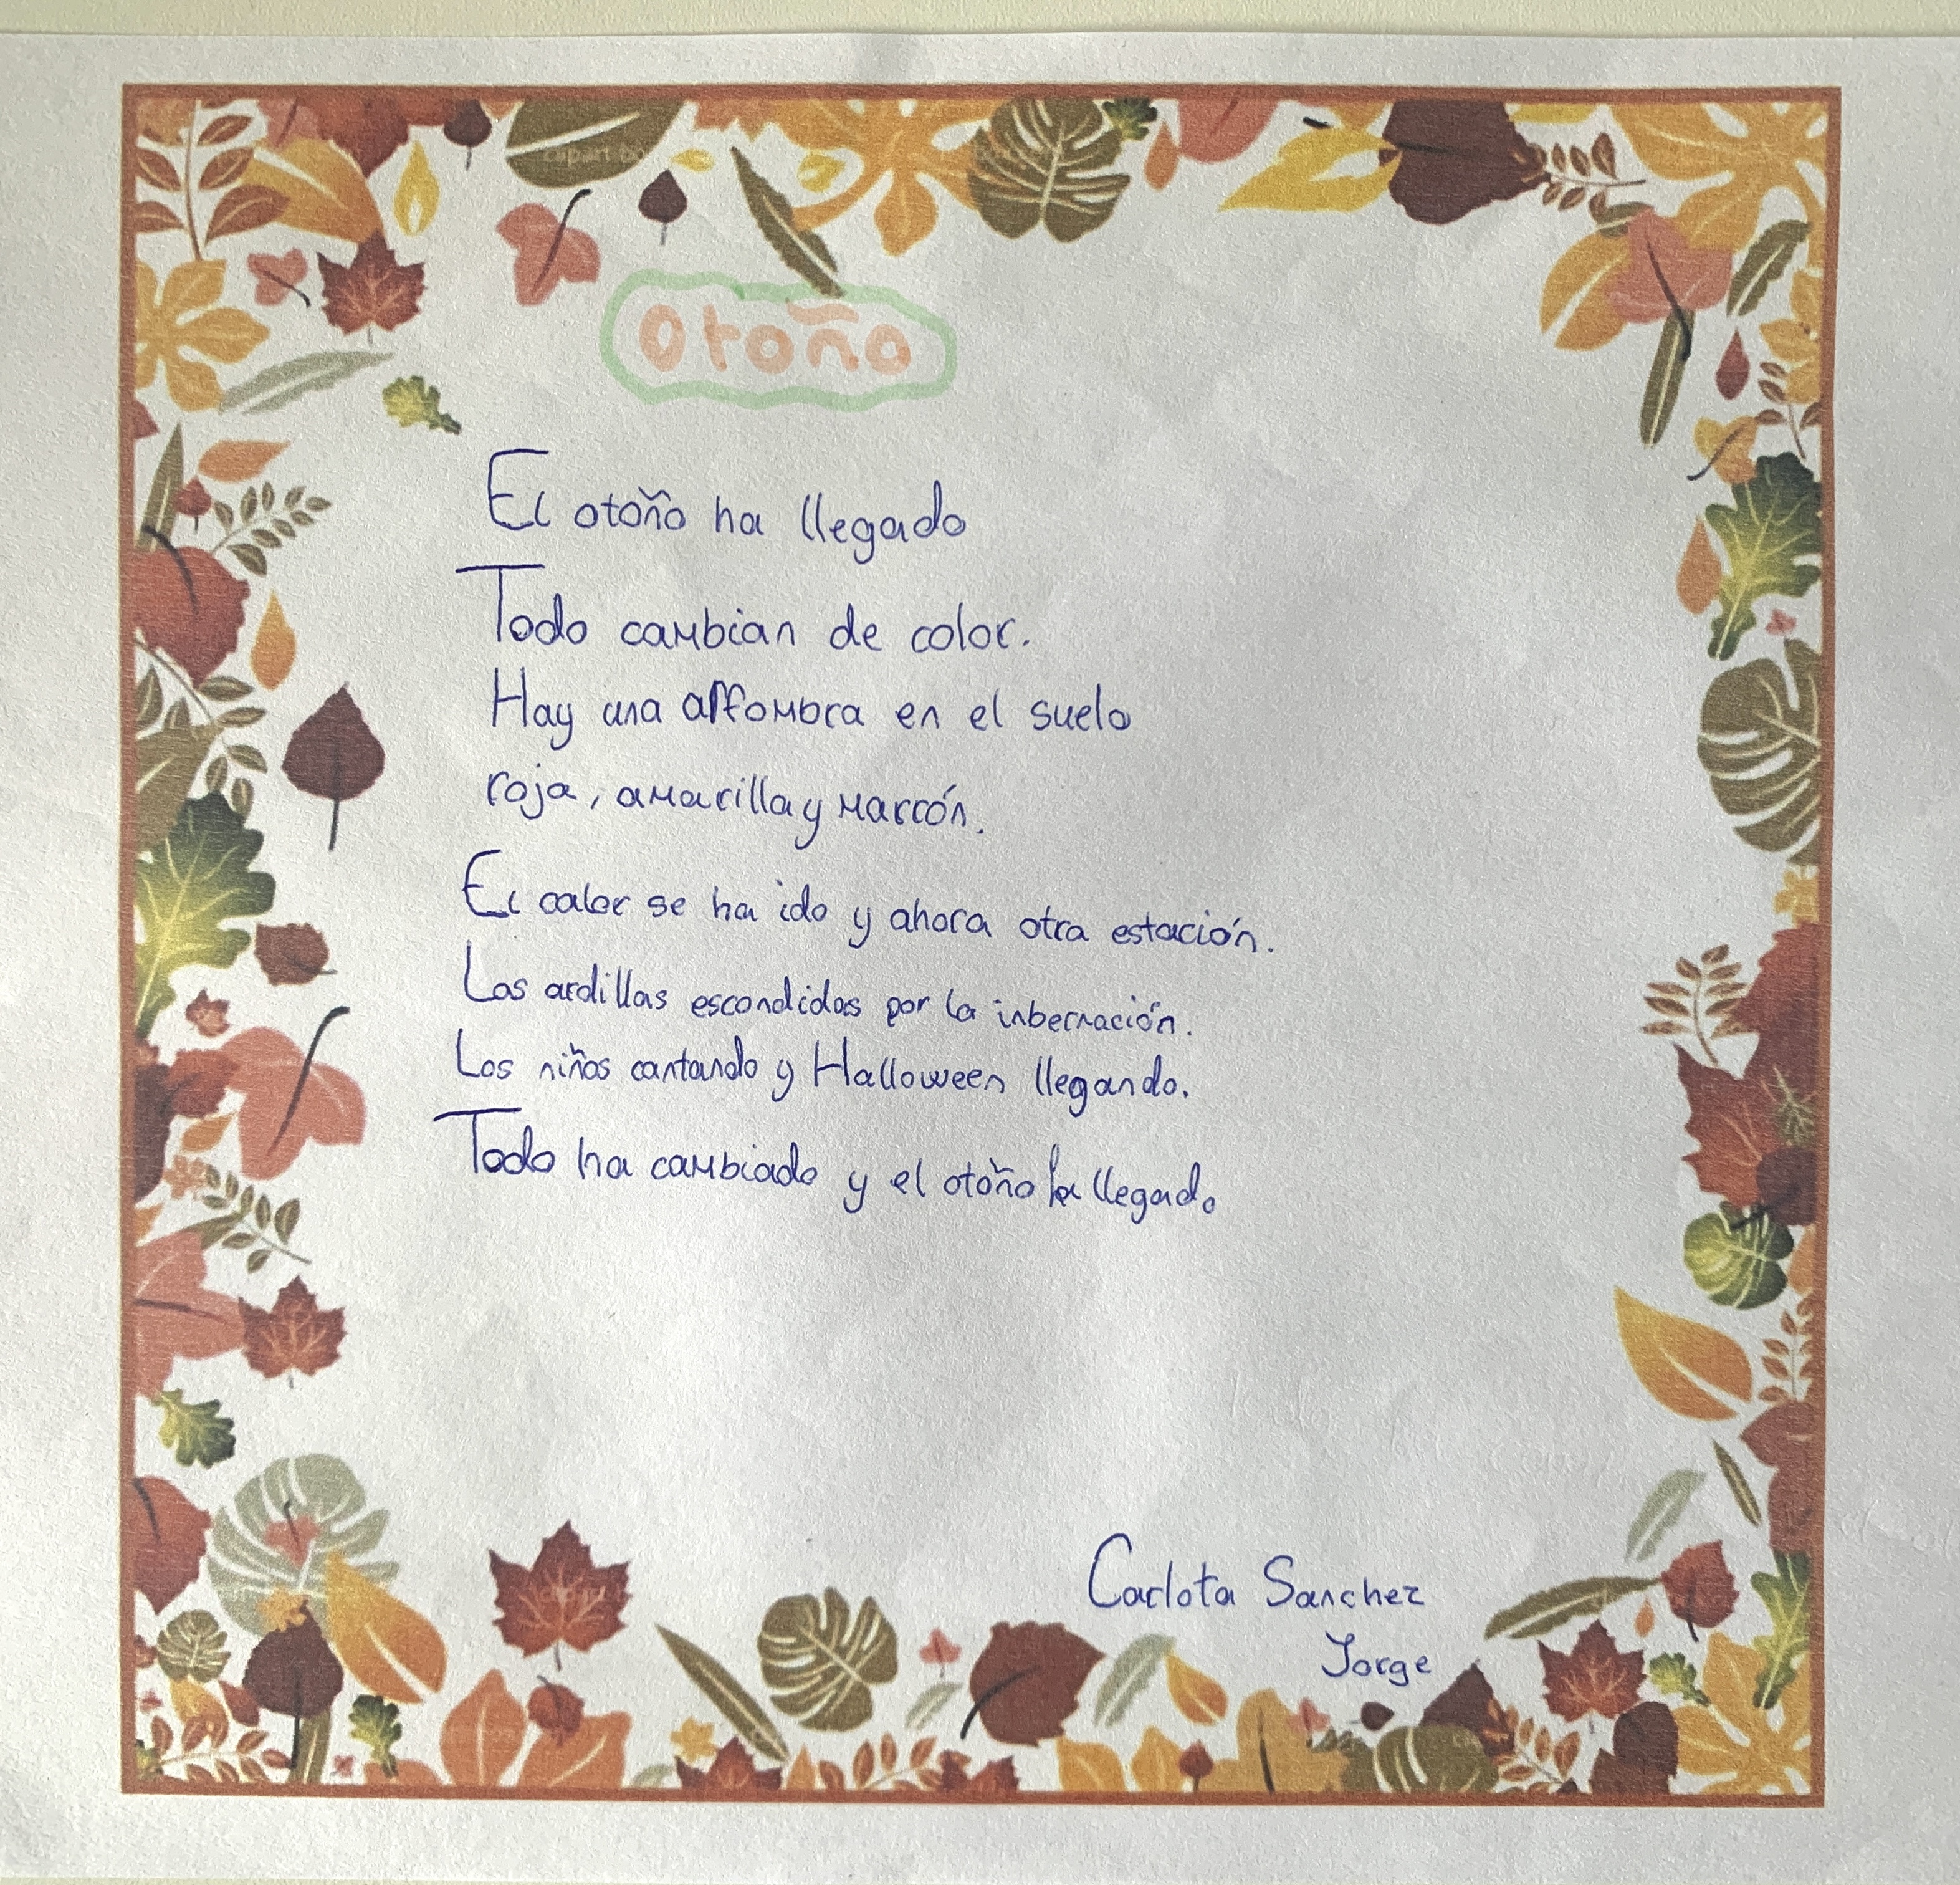 Otoño
El otoño ha llegado
Todo cambian de color.
Hay una alfombra en el suelo
roja, amarilla y marrón.
El calor se ha ido y ahora otra estación.
Las ardillas escondidas por la inbernación.
Los niños cantando y Halloween llegando.
Todo ha cambiado y el otoño ha llegado
Carlota Sanchez
Jorge